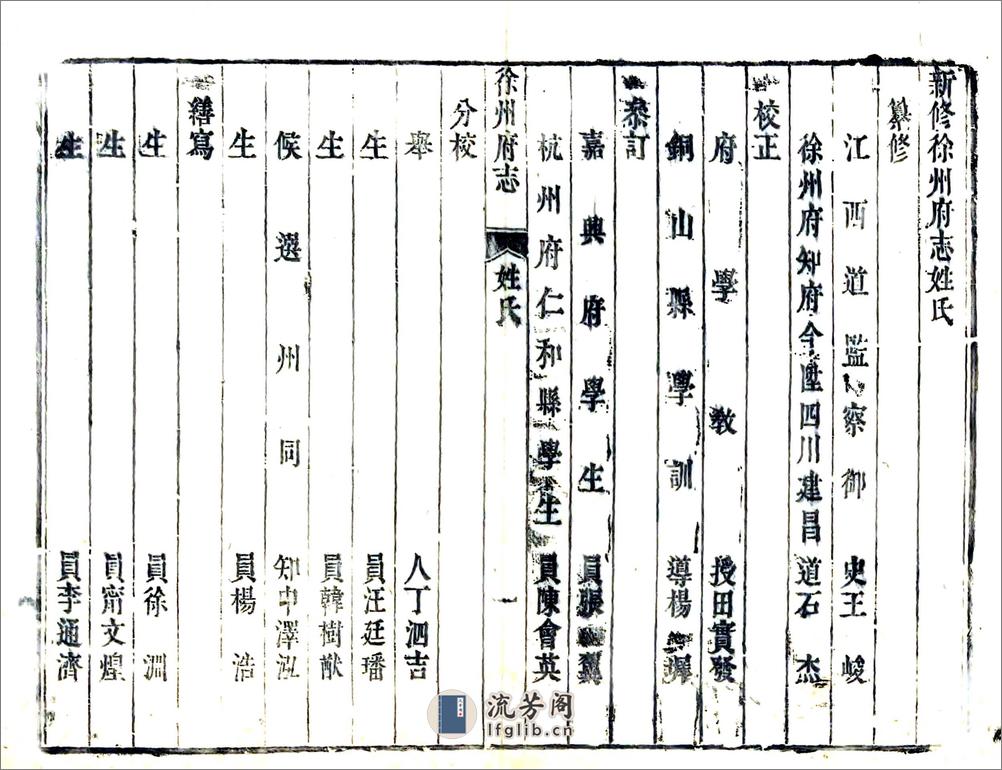 新修徐州府志姓氏
纂修
江西道監察御史王峻
徐州府知府今陞四川建昌道石杰
校正
府學教授田實發
銅山縣學訓導楊
叅訂
嘉興府學生員張
杭州府仁和縣學生員陳會英
徐州府志 姓氏 一
分校
舉人丁泗吉
生員汪廷璠
生員韓樹猷
候選州同知申澤泓
生員楊浩
繕寫
生員徐淵
生員甯文煌
生員李通濟
流芳阁
lfglib.cn